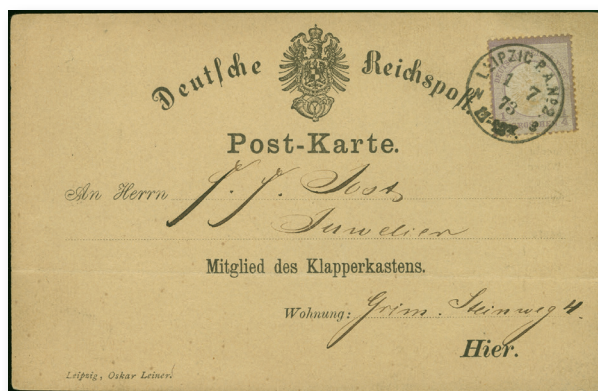 Deutsche Reichspost.
LEIPZIG P.A. No. 2.
1 7
73
Post-Karte.
An Herrn J. J. Jost
Juwelier
Mitglied des Klapperkastens.
Wohnung: Grim. Steinweg 4.
Hier.
Leipzig, Oskar Leiner.